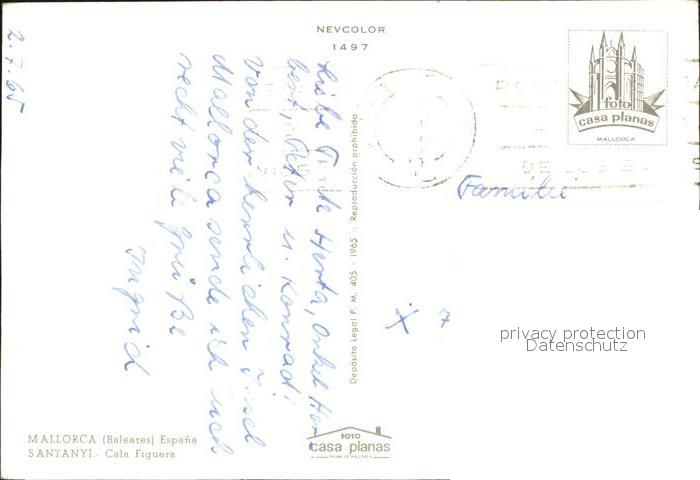 NEVCOLOR
1497
foto
casa planas
MALLORCA
2.7.65
Liebe Tante Herta, Onkel Her-
bert, Peter u. Konrad!
Von der herrlichen Insel
Mallorca sende ich Euch
recht viele Grüße
Ingrid
Familie
Depósito Legal P. M. 405 - 1965 :: Reproducción prohibida
x
privacy protection
Datenschutz
MALLORCA (Baleares) España
SANTANYI.- Cala Figuera
FOTO
casa planas
PALMA DE MALLORCA